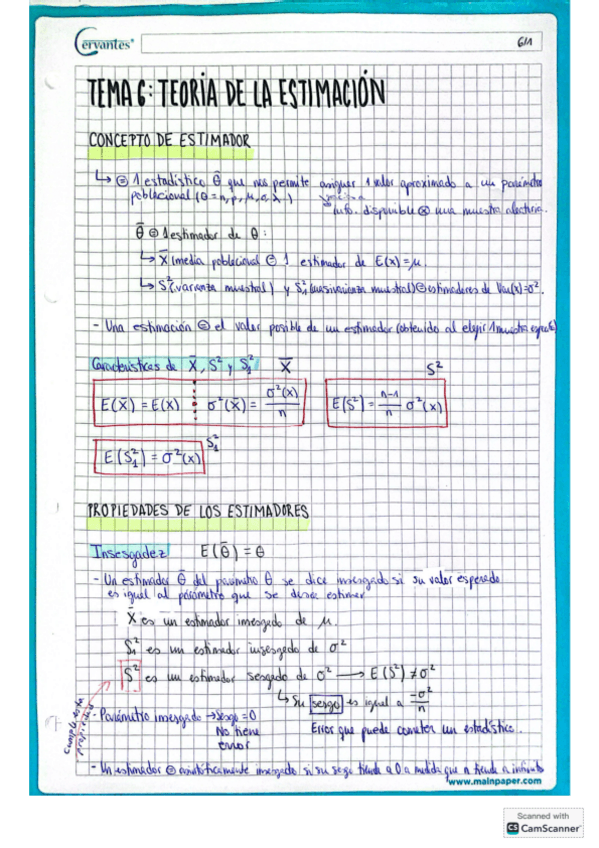 Cervantes®
6/1
TEMA 6: TEORÍA DE LA ESTIMACIÓN
CONCEPTO DE ESTIMADOR
↳ ⊜ 1 estadístico θ̄ que nos permite 1 valor aproximado a un parámetro
poblacional (θ = n, p, μ, σ, λ)
info. disponible una muestra aleatoria.
θ̄ ⊜ 1 estimador de θ:
↳ X̄ (media poblacional ⊜ 1 estimador de E(x) = μ.
↳ S² (varianza muestral) y S₁² (cuasivarianza muestral) ⊜ estimadores de Var(x) = σ².
- Una estimación ⊜ el valor posible de un estimador (obtenido al elegir 1 muestra
Características de X̄, S² y S₁² X̄ S²
E(X̄) = E(X) σ²(X̄) = σ²(x)/n E(S²) = n-1/n σ²(x)
E(S₁²) = σ²(x) S₁²
PROPIEDADES DE LOS ESTIMADORES
Insesgadez E(θ̄) = θ
- Un estimador θ̄ del parámetro θ se dice insesgado si su valor esperado
es igual al parámetro que se desea estimar
X̄ es un estimador insesgado de μ.
S₁² es un estimador insesgado de σ²
S² es un estimador sesgado de σ² → E(S²) ≠ σ²
↳ Su sesgo es igual a -σ²/n
- Parámetro insesgado → Sesgo = 0 Error que puede cometer un estadístico.
No tiene
error
cumple esta
propiedad
- Un estimador ⊜ asintóticamente insesgado si su sesgo tiende a 0 a medida que n tiende a infinito
www.mainpaper.com
Scanned with
CS CamScanner